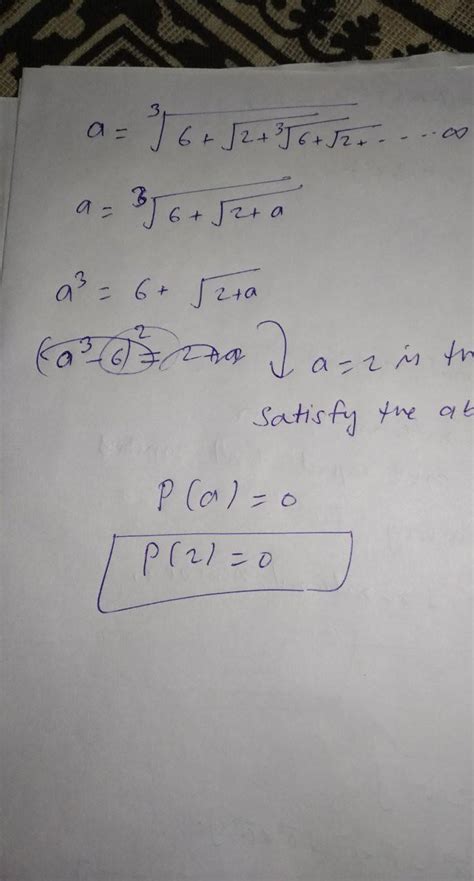 a = ∛6 + √2 + ∛6 + √2 + - - - - ∞
a = ∛6 + √2 + a
a³ = 6 + √2+a
(a³ - 6)² = 2 + a
a = 2 is
satisfy the
P(a) = 0
P(2) = 0